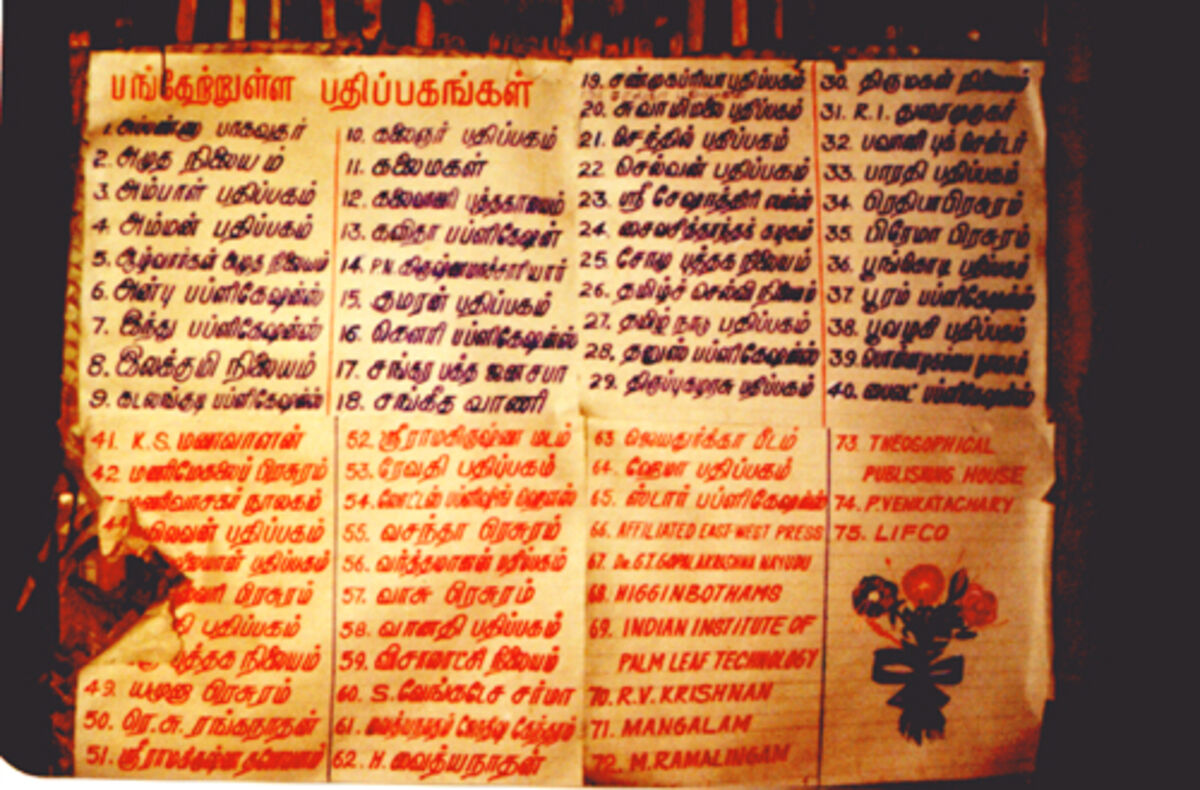 பங்தேற்றுள்ள பதிப்பகங்கள்
2. அமுத நிலையம்
3. அம்பாள் பதிப்பகம்
4. அம்மன் பதிப்பகம்
5. ஆழ்வார்கள் அமுத நிலையம்
6. அன்பு பப்ளிகேஷன்ஸ்
7. இந்து பப்ளிகேஷன்ஸ்
8. இலக்குமி நிலையம்
9. கடலங்குடி பப்ளிகேஷன்ஸ்
10. கலைஞர் பதிப்பகம்
11. கலைமகள்
12. கலைவாணி புத்தகாலயம்
13. கவிதா பப்ளிகேஷன்
14. P.N. கிருஷ்ணமாச்சாரியார்
15. குமரன் பதிப்பகம்
16. கௌரி பப்ளிகேஷன்ஸ்
17. சங்கர பக்த ஜனசபா
18. சங்கீத வாணி
19. சண்முகப்ரியா பதிப்பகம்
20. சுவாமிமலை பதிப்பகம்
21. செந்தில் பதிப்பகம்
22. செல்வன் பதிப்பகம்
23. ஸ்ரீ சேஷாத்திரி
24. சைவசித்தாந்தக் கழகம்
25. சோடி புத்தக நிலையம்
26. தமிழ்ச் செல்வி நிலையம்
27. தமிழ் நாடு பதிப்பகம்
28. தனுஸ் பப்ளிகேஷன்ஸ்
29. திருப்புகழரசு பதிப்பகம்
30. திருமகள் நிலையம்
31. R.I. துரைமுருகர்
32. பவானி புக் சென்டர்
33. பாரதி பதிப்பகம்
34. பிரதிபா பிரசுரம்
35. பிரேமா பிரசுரம்
36. பூங்கொடி பதிப்பகம்
37. பூரம் பப்ளிகேஷன்ஸ்
38. பூவழகி பதிப்பகம்
39.
40. பைலட் பப்ளிகேஷன்ஸ்
41. K.S. மணவாளன்
42. மணிமேகலைப் பிரசுரம்
மணிவாசகர் நூலகம்
பதிப்பகம்
பதிப்பகம்
பிரசுரம்
பதிப்பகம்
நிலையம்
49. யமுனா பிரசுரம்
50. ரெ.சு. ரங்கநாதன்
51. ஸ்ரீராமகிருஷ்ண தபோவனம்
52. ஸ்ரீராமகிருஷ்ண மடம்
53. ரேவதி பதிப்பகம்
54.
55. வசந்தா பிரசுரம்
56. வர்த்தமானன் பதிப்பகம்
57. வாசு பிரசுரம்
58. வானதி பதிப்பகம்
59. விசாலாட்சி நிலையம்
60. S. வேங்கடேச சர்மா
61.
62. H. வைத்யநாதன்
63. ஜெயதுர்க்கா பீடம்
64. ஹேமா பதிப்பகம்
65. ஸ்டார் பப்ளிகேஷன்ஸ்
66. AFFILIATED EAST-WEST PRESS
67. Dr. G.T. GOPALAKRISHNA NAYUDU
68. HIGGINBOTHAMS
69. INDIAN INSTITUTE OF
PALM LEAF TECHNOLOGY
70. R.V. KRISHNAN
71. MANGALAM
72. M. RAMALINGAM
73. THEOGOPHICAL
PUBLISHING HOUSE
74. P.VENKATACHARY
75. LIFCO